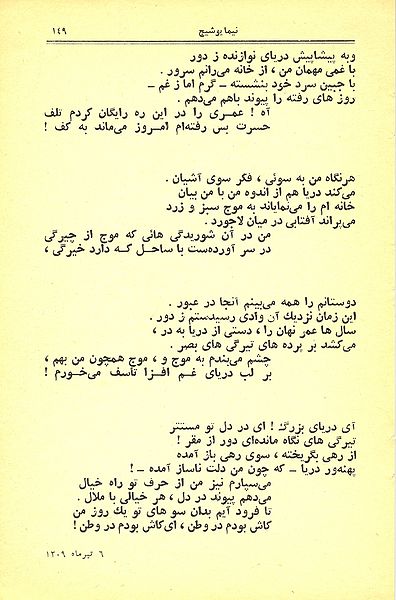 نیما یوشیج
۱۴۹
وبه پیشاپیش دریای نوازنده ز دور
با غمی مهمان من ، از خانه می‌رانم سرور .
با جبین سرد خود بنشسته – گرم اما ز غم –
روز های رفته را پیوند باهم می‌دهم .
آه ! عمـری را در این ره رایگان کردم تلف
حسرت بس رفته‌ام امـروز می‌ماند به کف !
هرنگاه من به سوئی ، فکر سوی آشیان .
می‌کند دریا هم از اندوه من با من بیان
خانه ام را می‌نمایاند به موج سبز و زرد
می‌پراند آفتابی در میان لاجورد .
من در آن شوریدگی هائی که موج از چیرگی
در سر آورده‌ست با ساحـل کـه دارد خیرگی ،
دوستانم را همه می‌بینم آنجا در عبور .
این زمان نزدیك آن وادی رسیدستم ز دور .
سال ها عمر نهان را ، دستی از دریا به در ،
می‌کشد بر پرده های تیرگی های بصر .
چشم می‌بندم به موج و ، موج همچون من بهم ،
بر لب دریای غـم افـزا تاسف می‌خورم !
آی دریای بزرگ ! ای در دل تو مستتر
تیرگی های نگاه مانده‌ای دور از مقر !
از رهی بگریخته ، سوی رهی باز آمده
پهنه‌ور دریا – که چون من دلت ناساز آمده – !
می‌سپارم نیز من از حرف تو راه خیال
می‌دهم پیوند در دل ، هر خیالی با ملال .
تا فرود آیم بدان سو های تو یك روز من
کاش بودم در وطن ، ای‌کاش بودم در وطن !
۶ تیرماه ۱۳۰۹